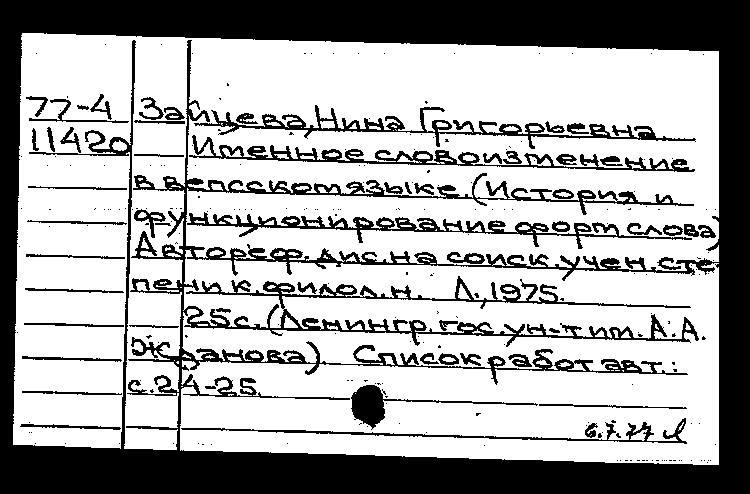 77-4 Зайцева, Нина Григорьевна
11420 Именное словоизменение
в вепсском языке. (История и
функционирование форм слова)
Автореф. дис. на соиск. учен. сте-
пени к. филол. н. Л., 1975.
25 с. (Ленингр. гос. ун-т им. А. А.
Жданова). Список работ авт.:
с. 24-25.
6.7.77